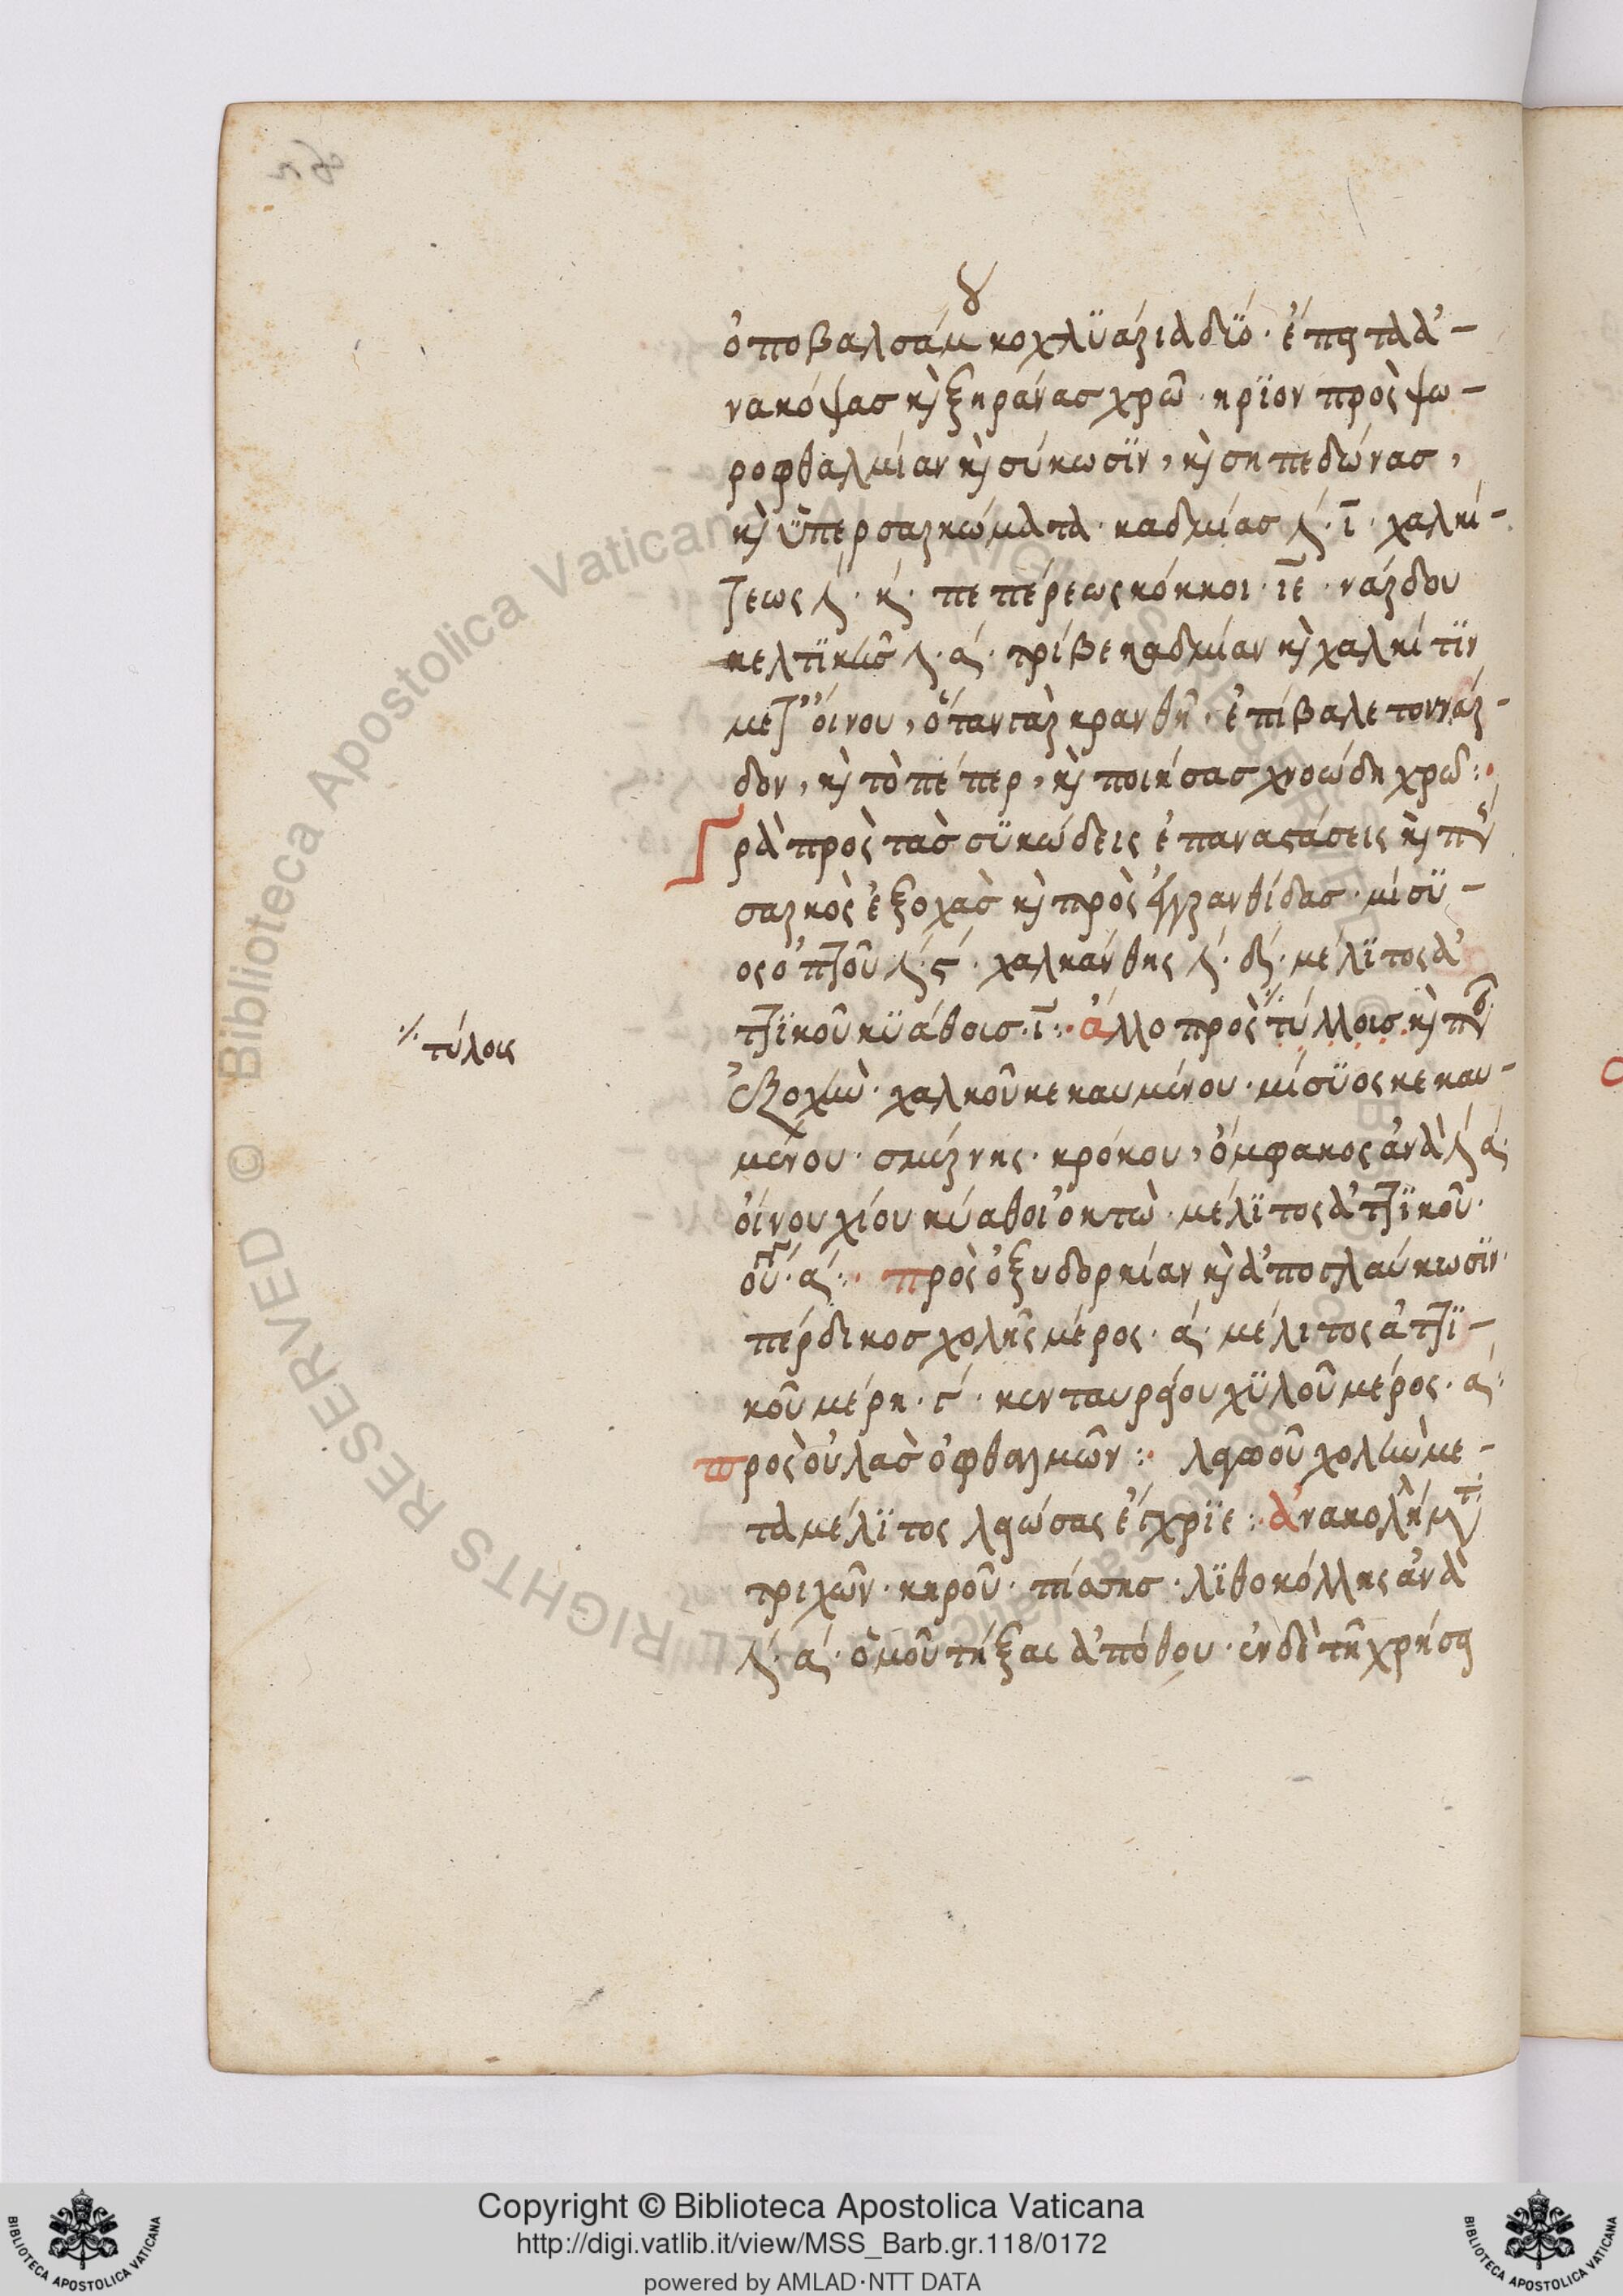 ὀποβαλσάμου κοχλϋάρια δϋό · ἔπειτα ἀ-
νακόψας καὶ ξηράνας χρῶ · ξηρϊον πρὸς ψω-
ροφθαλμίαν καὶ σύκωσϊν, καὶ σηπεδώνας,
καὶ ὑπερσαρκώματα · καδμίας · ι · χαλκί-
τεως · κ · πεπέρεως κόκκοι · ιε · νάρδου
κελτϊκῆς · α · τρίβε καδμίαν καὶ χαλκίτϊν
μετ' οἴνου, ὅταν ξηρανθῆ, ἐπίβαλε τον νάρ-
δον, καὶ τὸ πέπερ, καὶ ποιήσας χνοώδη χρῶ :·
πρὸς τὰς σϋκώδεις ἐπαναστάσεις καὶ
σαρκὸς ἐξοχὰς καὶ πρὸς · μίσϋ-
ος ὀπτοῦ · ϛ · χαλκάνθης · δ · μέλϊτος ἀτ-
τϊκοῦ κϋάθοις · ι :· ἄλλο πρὸς τύλλοις καὶ
ἐξοχὴν · χαλκοῦ κεκαυμένου · μίσϋος κεκαυ-
μένου · σμύρνης · κρόκου, ὄμφακος ἀνὰ α
οἴνου χίου κύαθοι ὀκτὼ · μέλϊτος ἀττϊκοῦ ·
α :· πρὸς ὀξυδορκίαν καὶ ἀπογλαύκωσϊν ·
πέρδικος χολῆς μέρος · α · μέλιτος ἀττϊ-
κοῦ μέρη · γ · κενταυρείου χϋλοῦ μέρος · α :
πρὸς οὐλὰς ὀφθαλμῶν :· χολὴν με-
τὰ μέλϊτος λειώσας ἔγχρϊε :· ἀνακολλήματα
τριχῶν · κηροῦ · πίσσης · λϊθοκόλλης ἀνὰ
α · ὁμοῦ τήξας ἀπόθου · ἐν δὲ τῆ χρήσει
τύλοις
Copyright © Biblioteca Apostolica Vaticana
http://digi.vatlib.it/view/MSS_Barb.gr.118/0172
powered by AMLAD·NTT DATA